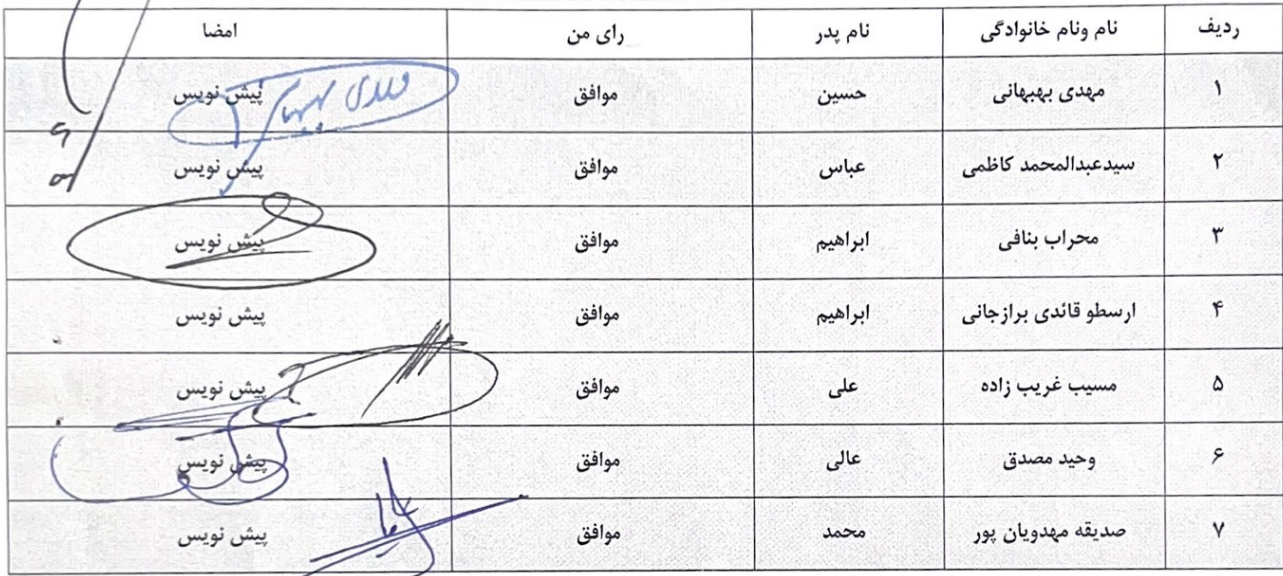 ردیف نام ونام خانوادگی نام پدر رای من امضا
۱ مهدی بهبهانی حسین موافق پیش نویس
۲ سیدعبدالمحمد کاظمی عباس موافق پیش نویس
۳ محراب بنافی ابراهیم موافق پیش نویس
۴ ارسطو قائدی برازجانی ابراهیم موافق پیش نویس
۵ مسیب غریب زاده علی موافق پیش نویس
۶ وحید مصدق عالی موافق پیش نویس
۷ صدیقه مهدویان پور محمد موافق پیش نویس